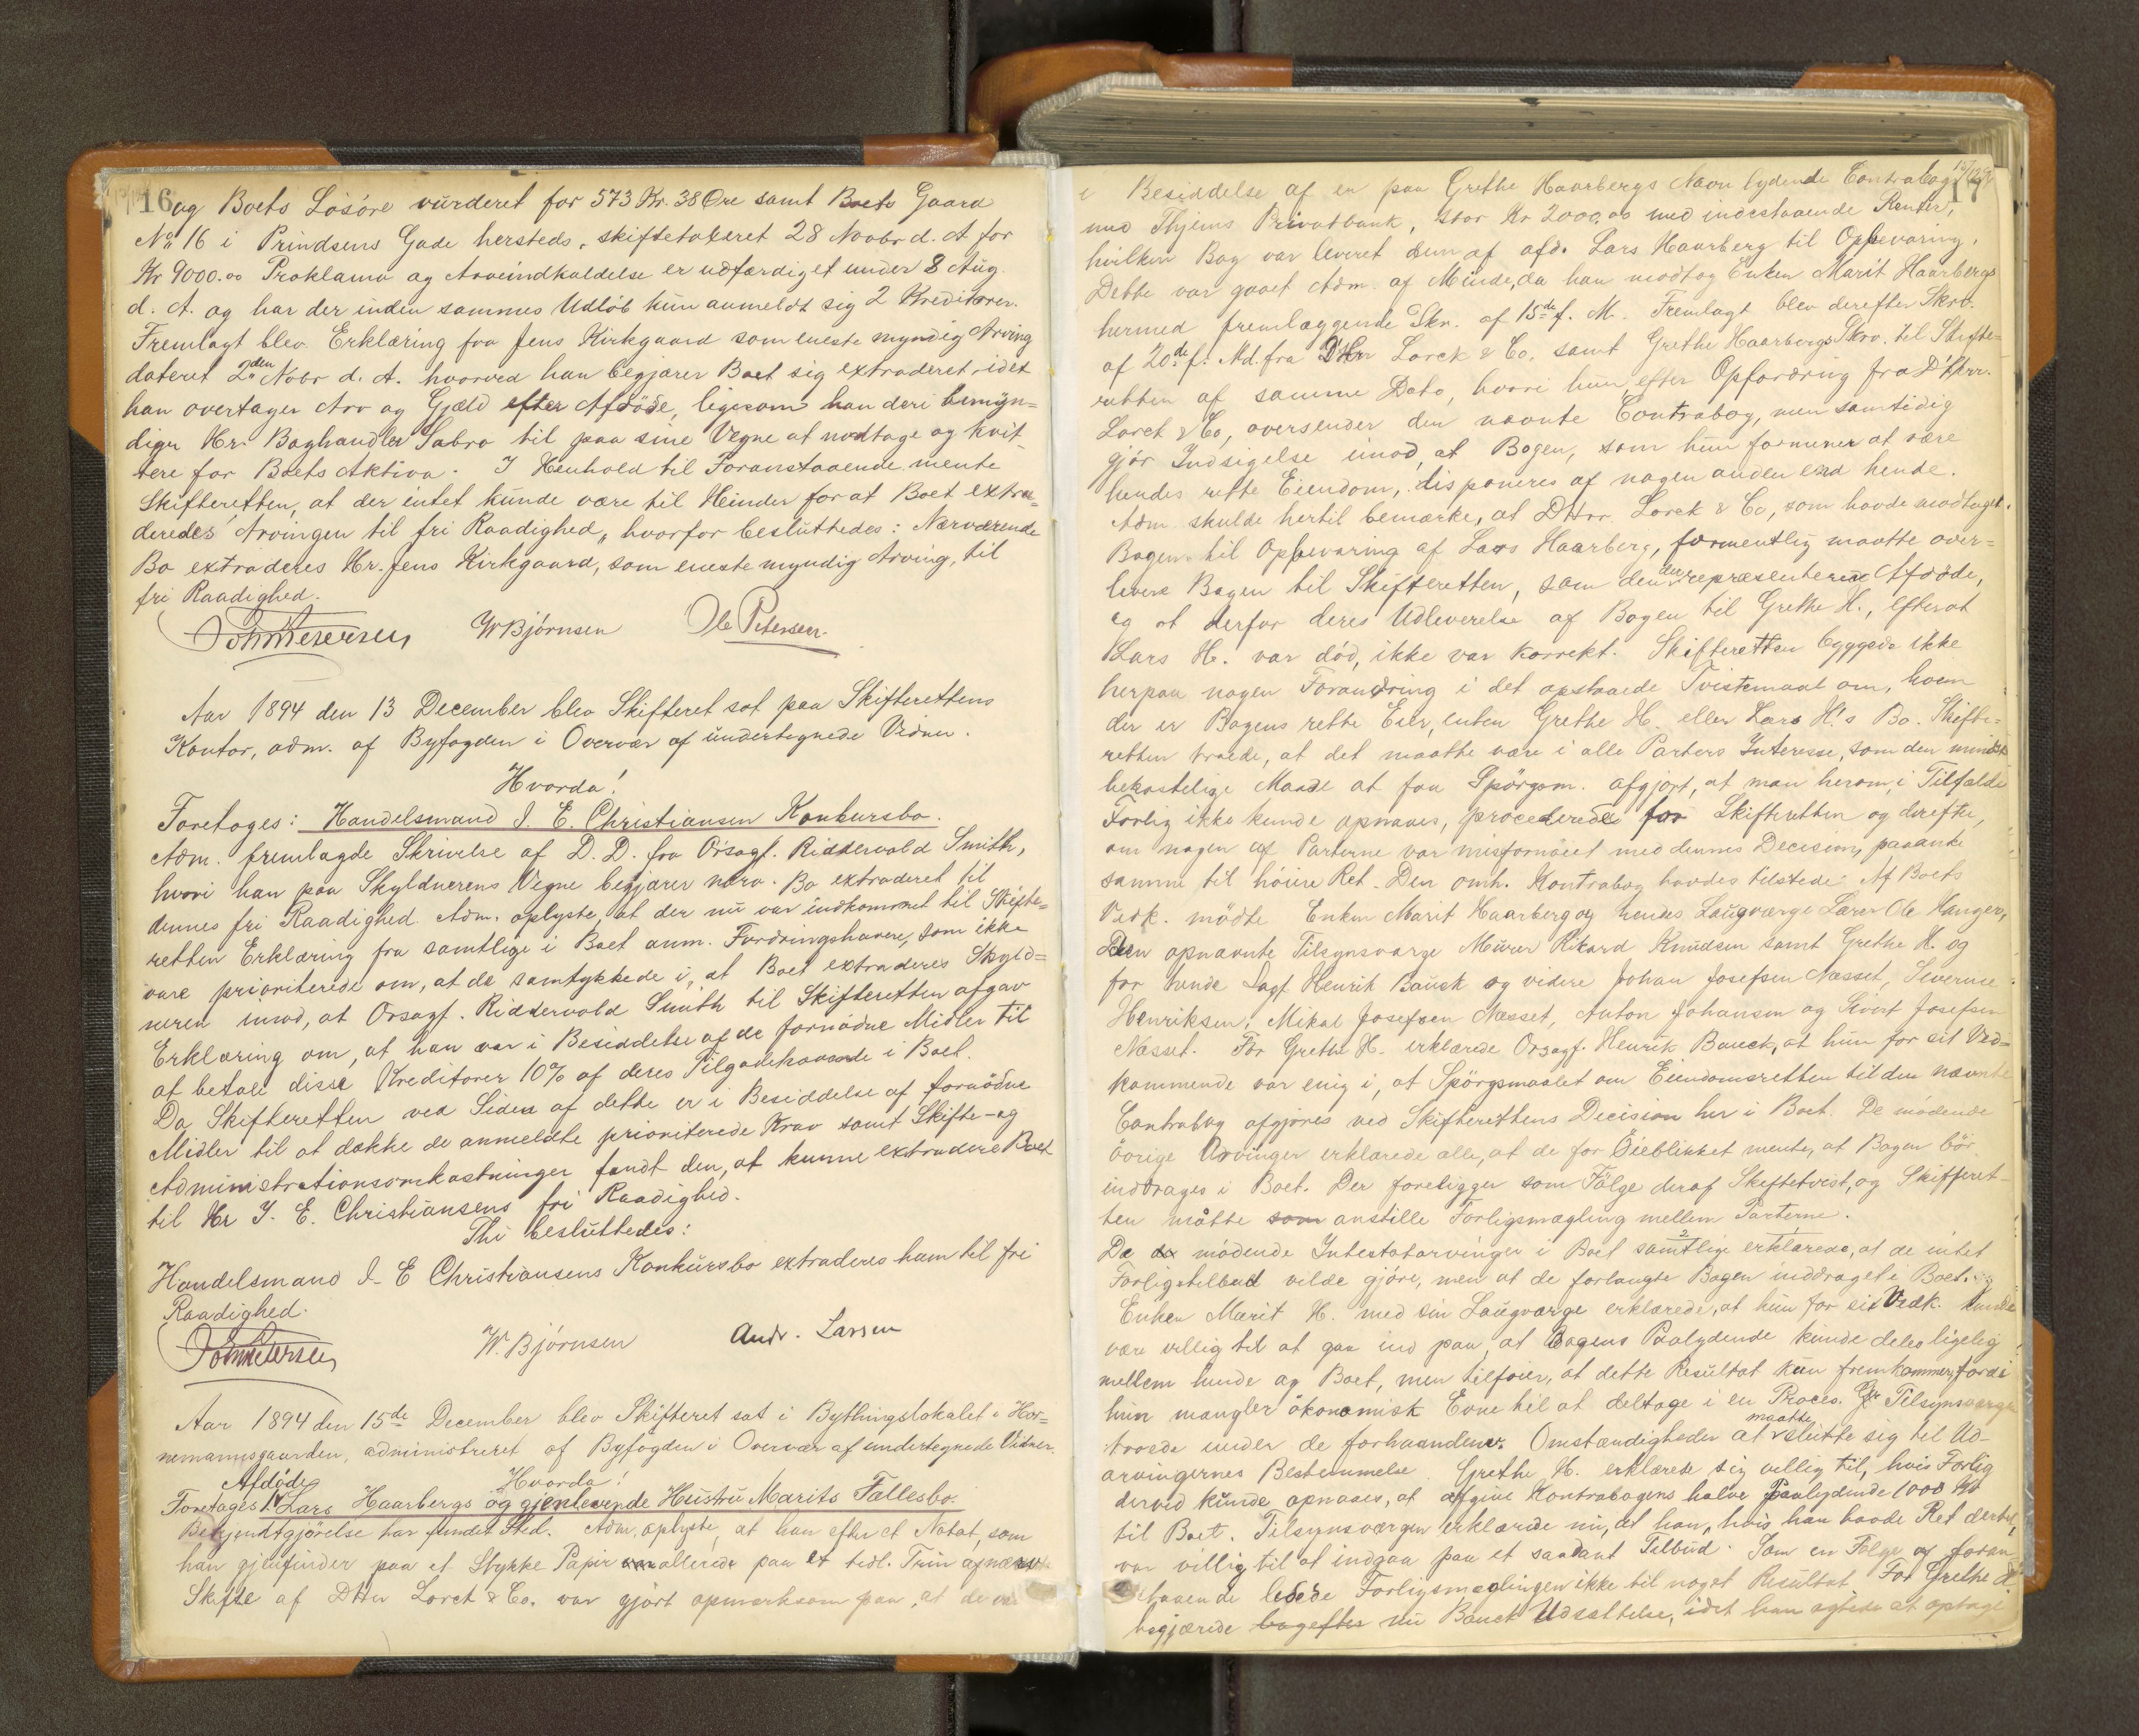 16
og Boets Løsøre vurderet for 573 Kr. 38 Øre samt Boets Gaard
No 16 i Prindsens Gade hersteds, skiftetakeret 28 Novbr d. A. for
Kr 9000.00 Proklama og Arveindkaldelse er udfærdiget under 8 Aug.
d. A. og har der inden sammes Udløb kun anmeldt sig 2 Kreditorer.
Fremlagt blev Erklæring fra Jens Kirkgaard som eneste myndig Arving
dateret 2den Novbr d. A. hvorved han begjærer Boet sig extraderet idet
han overtager Arv og Gjæld efter Afdøde, ligesom han deri bemyn=
diger Hr. Boghandler Sabro til paa sine Vegne at modtage og kvit-
tere for Boets Aktiva. I Henhold til Foranstaaende mente
Skifteretten, at der intet kunde være til Hinder for at Boet extra=
deredes Arvingen til fri Raadighed, hvorfor besluttedes: Nærværende
Bo extraderes Hr. Jens Kirkgaard, som eneste myndig Arving, til
fri Raadighed.
W Bjørnsen Ole Petersen
Aar 1894 den 13 December blev Skifteret sat paa Skifterettens
Kontor, adm. af Byfogden i Overvær af undertegnede Vidner.
Hvorda!
Foretoges: Handelsmand I. E. Christiansen Konkursbo.
Adm. fremlagde Skrivelse af D. D. fra Orsagf. Riddervold Smith,
hvori han paa Skyldnerens Vegne begjærer nærv. Bo extraderet til
dennes fri Raadighed. Adm. oplyste, at der nu var indkommet til Skifte=
retten Erklæring fra samtlige i Boet anm. Fordringshavere, som ikke
vare prioriterede om, at de samtykkede i, at Boet extraderes Skyld=
neren imod, at Orsagf. Riddervold Smith til Skifteretten afgav
Erklæring om, at han var i Besiddelse af de fornødne Midler til
at betale disse Kreditorer 10% af deres Tilgodehavende i Boet.
Da Skifteretten ved Siden af dette er i Besiddelse af fornødne
Midler til at dække de anmeldte prioriterede Krav samt Skifte- og
Administrationsomkostninger fandt den, at kunne extradere Boet
til Hr I. E. Christiansens fri Raadighed.
Thi besluttedes:
Handelsmand I. E Christiansens Konkursbo extraderes ham til fri
Raadighed.
W. Bjørnsen Andr. Larsen
Aar 1894 den 15de December blev Skifteret sat i Bythingslokalet i Hor=
nemannsgaarden, administreret af Byfogden i Overvær af undertegnede Vidner.
Hvorda!
Afdøde
Foretoges Lars Haarbergs og gjenlevende Hustru Marits Fællesbo.
Bekjendtgjørelse har fundet Sted. Adm. oplyste, at han efter et Notat, som
han gjenfinder paa et Stykke Papir allerede paa et tidl. Trin af nærv.
Skifte af DHrr Lorck & Co. var gjort opmærksom paa, at de var
17
i Besiddelse af en paa Grethe Haarbergs Navn lydende Contrabog
med Thjems Privatbank, stor Kr 2000.00 med indestaaende Renter,
hvilken Bog var leveret dem af afd. Lars Haarberg til Opbevaring.
Dette var gaaet Adm. af Minde, da han modtog Enken Marit Haarbergs
hermed fremlæggende Skr. af 15de f. M. Fremlagt blev derefter Skrv.
af 20de f. Md. fra DHrr Lorck & Co. samt Grethe Haarbergs Skrv. til Skifte=
retten af samme Dato, hvori hun, efter Opfordring fra DHrr.
Lorck & Co, oversender den nævnte Contrabog, men samtidig
gjør Indsigelse imod, at Bogen, som hun formener at være
hendes rette Eiendom, disponeres af nogen anden end hende.
Adm. skulde hertil bemærke, at DHrr Lorck & Co, som havde modtaget
Bogen til Opbevaring af Lars Haarberg, formentlig maatte over=
levere Bogen til Skifteretten, som den der repræsenterede Afdøde,
og at derfor deres Udleverelse af Bogen til Grethe H., efterat
Lars H. var død, ikke var korrekt. Skifteretten byggede ikke
herpaa nogen Forandring i det opstaaede Tvistemaal om, hvem
der er Bogens rette Eier, enten Grethe H. eller Lars H's Bo. Skifte=
retten troede, at det maatte være i alle Parters Interesse, som den mindst
bekostelige Maade at faa Spørgsm. afgjort, at man herom, i Tilfælde
Forlig ikke kunde opnaaes, procederede for Skifteretten og derefter,
om nogen af Parterne var misfornøiet med dennes Decision, paaanke
samme til høiere Ret. Den omh. Kontrabog havdes tilstede. Af Boets
Vedk. mødte Enken Marit Haarberg og hendes Laugværge Lærer Ole Hanger,
Den opnævnte Tilsynsværge Murer Rikard Knudsen samt Grethe H. og
for hende Sagf. Henrik Bauck og videre Johan Josefsen Næsset, Severine
Henriksen, Mikal Josefsen Næsset, Anton Johansen og Sivert Josefsen
Næsset. For Grethe H. erklærede Orsagf. Henrik Bauck, at hun for sit Ved=
kommende var enig i, at Spørgsmaalet om Eiendomsretten til den nævnte
Contrabog afgjøres ved Skifterettens Decision her i Boet. De mødende
øvrige Arvinger erklærede alle, at de for Øieblikket mente, at Bogen bør
inddrages i Boet. Der foreligger som Følge deraf Skiftetvist, og Skifteret-
ten måtte som anstille Forligsmægling mellem Parterne.
De mødende Intestatarvinger i Boet samtlige erklærede, at de intet
Forligstilbud vilde gjøre, men at de forlangte Bogen inddraget i Boet.
Enken Marit H. med sin Laugværge erklærede, at hun for sit Vedk. kunde
være villig til at gaa ind paa, at Bogens Paalydende kunde deles ligelig
mellem hende og Boet, men tilføier, at dette Resultat kun fremkommer fordi
hun mangler økonomisk Evne til at deltage i en Proces. Tilsynsværgen
troede under de forhaandenv. Omstændigheder at maatte slutte sig til Ud-
arvingernes Bestemmelse. Grethe H. erklærede sig villig til, hvis Forlig
derved kunde opnaaes, at afgive Kontrabogens halve Paalydende 1000 Kr
til Boet. Tilsynsværgen erklærede nu, at han, hvis han havde Ret dertil,
var villig til at indgaa paa et saadant Tilbud. Som en Følge af foran
staaende ledede Forligsmæglingen ikke til noget Resultat. For Grethe H
begjærede bagefter nu Bauck Udsættelse, idet han agtede at optage